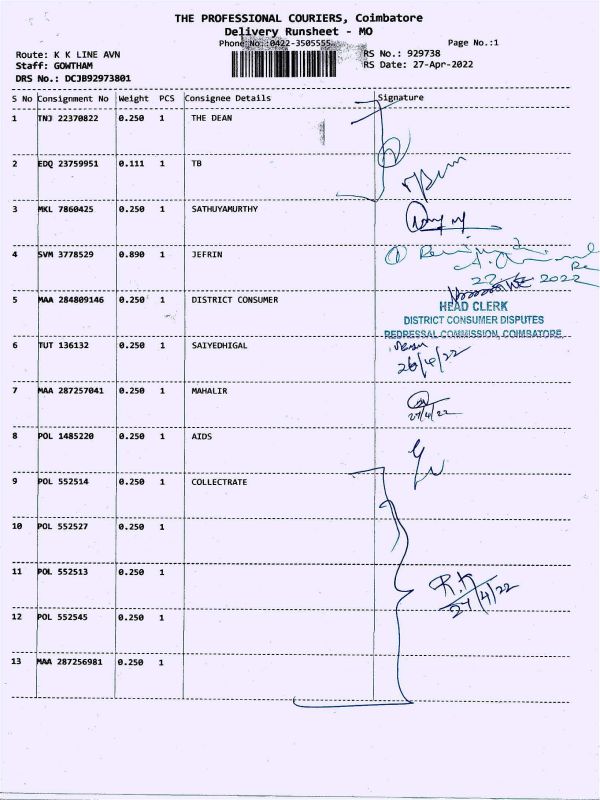 THE PROFESSIONAL COURIERS, Coimbatore
Delivery Runsheet - MO
Phone No.:0422-3505555
Page No.:1
Route: K K LINE AVN
RS No.: 929738
Staff: GOWTHAM
RS Date: 27-Apr-2022
DRS No.: DCJB92973801
S No Consignment No Weight PCS Consignee Details Signature
1 TNJ 22370822 0.250 1 THE DEAN
2 EDQ 23759951 0.111 1 TB
3 MKL 7860425 0.250 1 SATHUYAMURTHY
4 SVM 3778529 0.890 1 JEFRIN
2022
5 MAA 284809146 0.250 1 DISTRICT CONSUMER
HEAD CLERK
DISTRICT CONSUMER DISPUTES
REDRESSAL COMMISSION, COIMBATORE.
6 TUT 136132 0.250 1 SAIYEDHIGAL
26/4/22
7 MAA 287257041 0.250 1 MAHALIR
27/4/22
8 POL 1485220 0.250 1 AIDS
9 POL 552514 0.250 1 COLLECTRATE
10 POL 552527 0.250 1
11 POL 552513 0.250 1
R.K
27/4/22
12 POL 552545 0.250 1
13 MAA 287256981 0.250 1